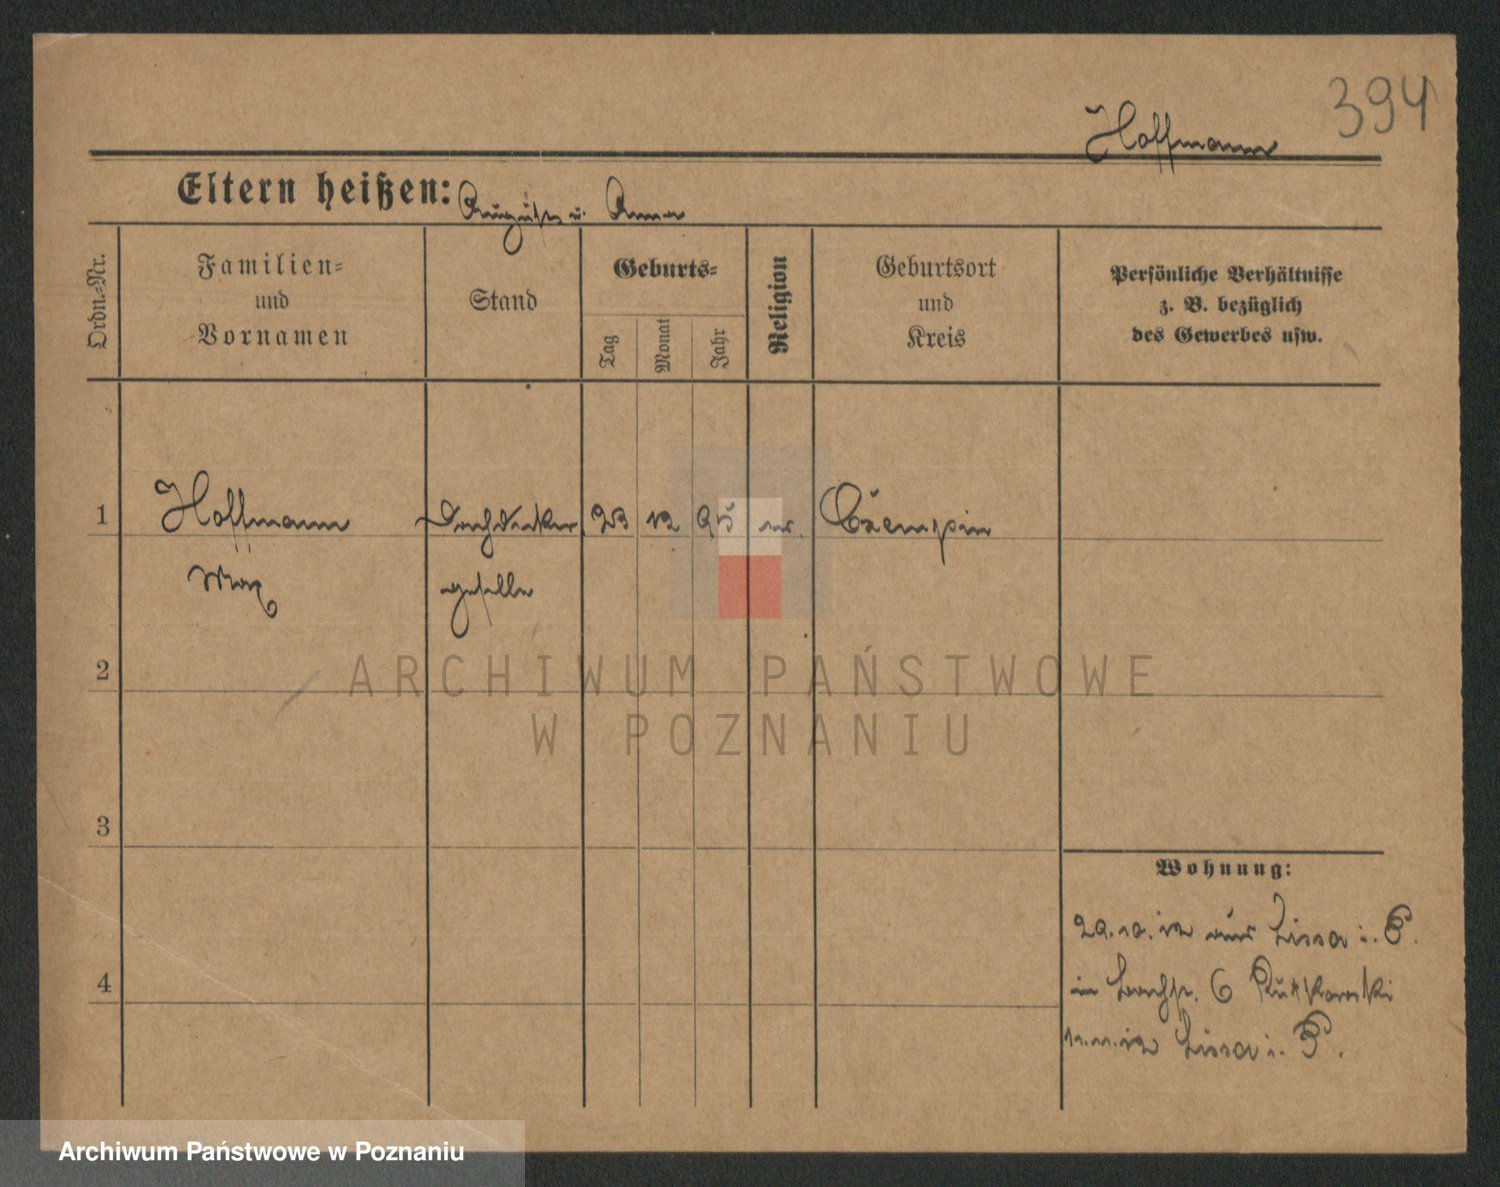 394
Hoffmann
Eltern heißen: August u. Anna
Ordn.-Nr.
Familien-
und
Vornamen
Stand
Geburts-
Tag
Monat
Jahr
Religion
Geburtsort
und
Kreis
Persönliche Verhältnisse
z. B. bezüglich
des Gewerbes usw.
1 Hoffmann Dachdecker 23 12 95 Czempin
Max geselle
2
3
4
Wohnung:
29.10.12 aus Lissa i. P.
in 6 Rutkowski
11.11.12 Lissa i. P.
ARCHIWUM PAŃSTWOWE
W POZNANIU
Archiwum Państwowe w Poznaniu